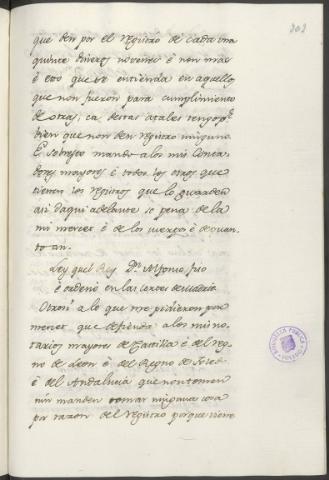 202
que den por el registro de cada una
quince dineros novenes é non mas
é esto que se entienda en aquello
que non fueron para cumplimiento
de otras, ca destas atales tengo por
bien que non den registro ninguno.
E sobresto mando a los mis Conta-
dores mayores é todos los otros que
tienen los registros que lo guarden
asi daqui adelante so pena de la
mi merced é de los cuerpos é de quan-
to an.
Ley quel Rey Dn. Alfonso, fizo
é ordenó en las cortes de
Otrosi a lo que me pidieron por
merced, que defienda a los mis no-
tarios mayores de Castilla é del reg-
no de Leon é del Regno de Toledo
é del Andalucia que non tomen
nin manden tomar ninguna cosa
por razon del registro porque tiene
BIBLIOTECA PUBLICA
TOLEDO